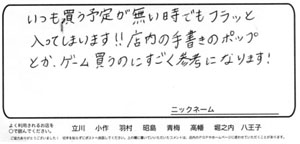 いつも買う予定が無い時でもフラッと
入ってしまいます!!店内の手書きのポップ
とか、ゲーム買うのにすごく参考になります!
ニックネーム
よく利用されるお店を
○で囲んでください。
立川 小作 羽村 昭島 青梅 高幡 堀之内 八王子